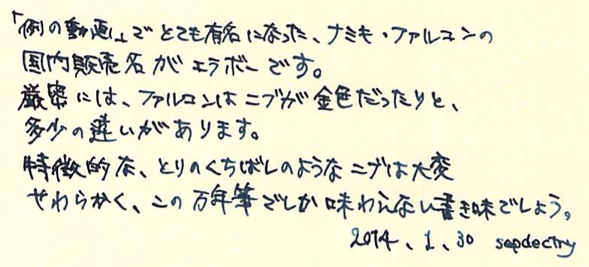 「例の動画」でとても有名になった、ナミキ・ファルコンの
国内販売名がエラボーです。
厳密には、ファルコンはニブが金色だったりと、
多少の違いがあります。
特徴的な、とりのくちばしのようなニブは大変
やわらかく、この万年筆でしか味わえない書き味でしょう。
2014、1、30 sepdectry